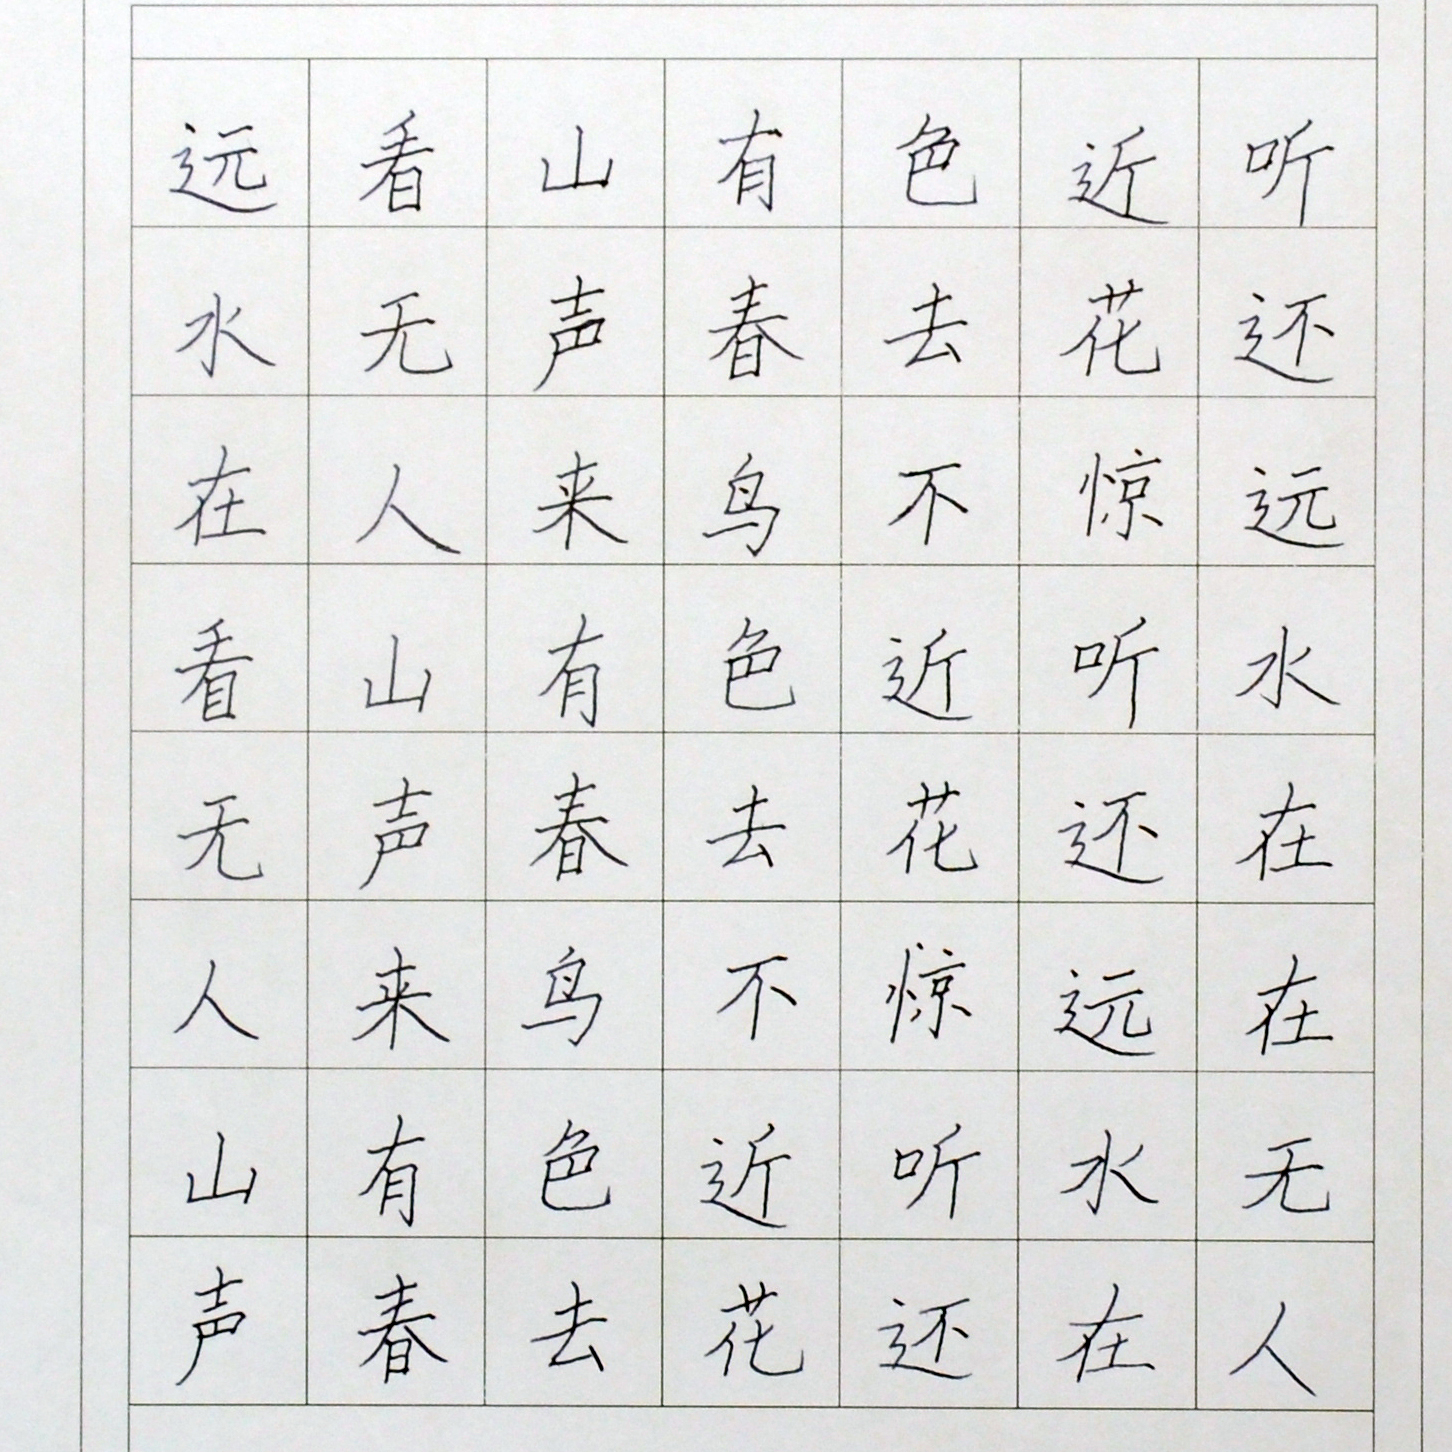 远看山有色近听
水无声春去花还
在人来鸟不惊远
看山有色近听水
无声春去花还在
人来鸟不惊远在
山有色近听水无
声春去花还在人